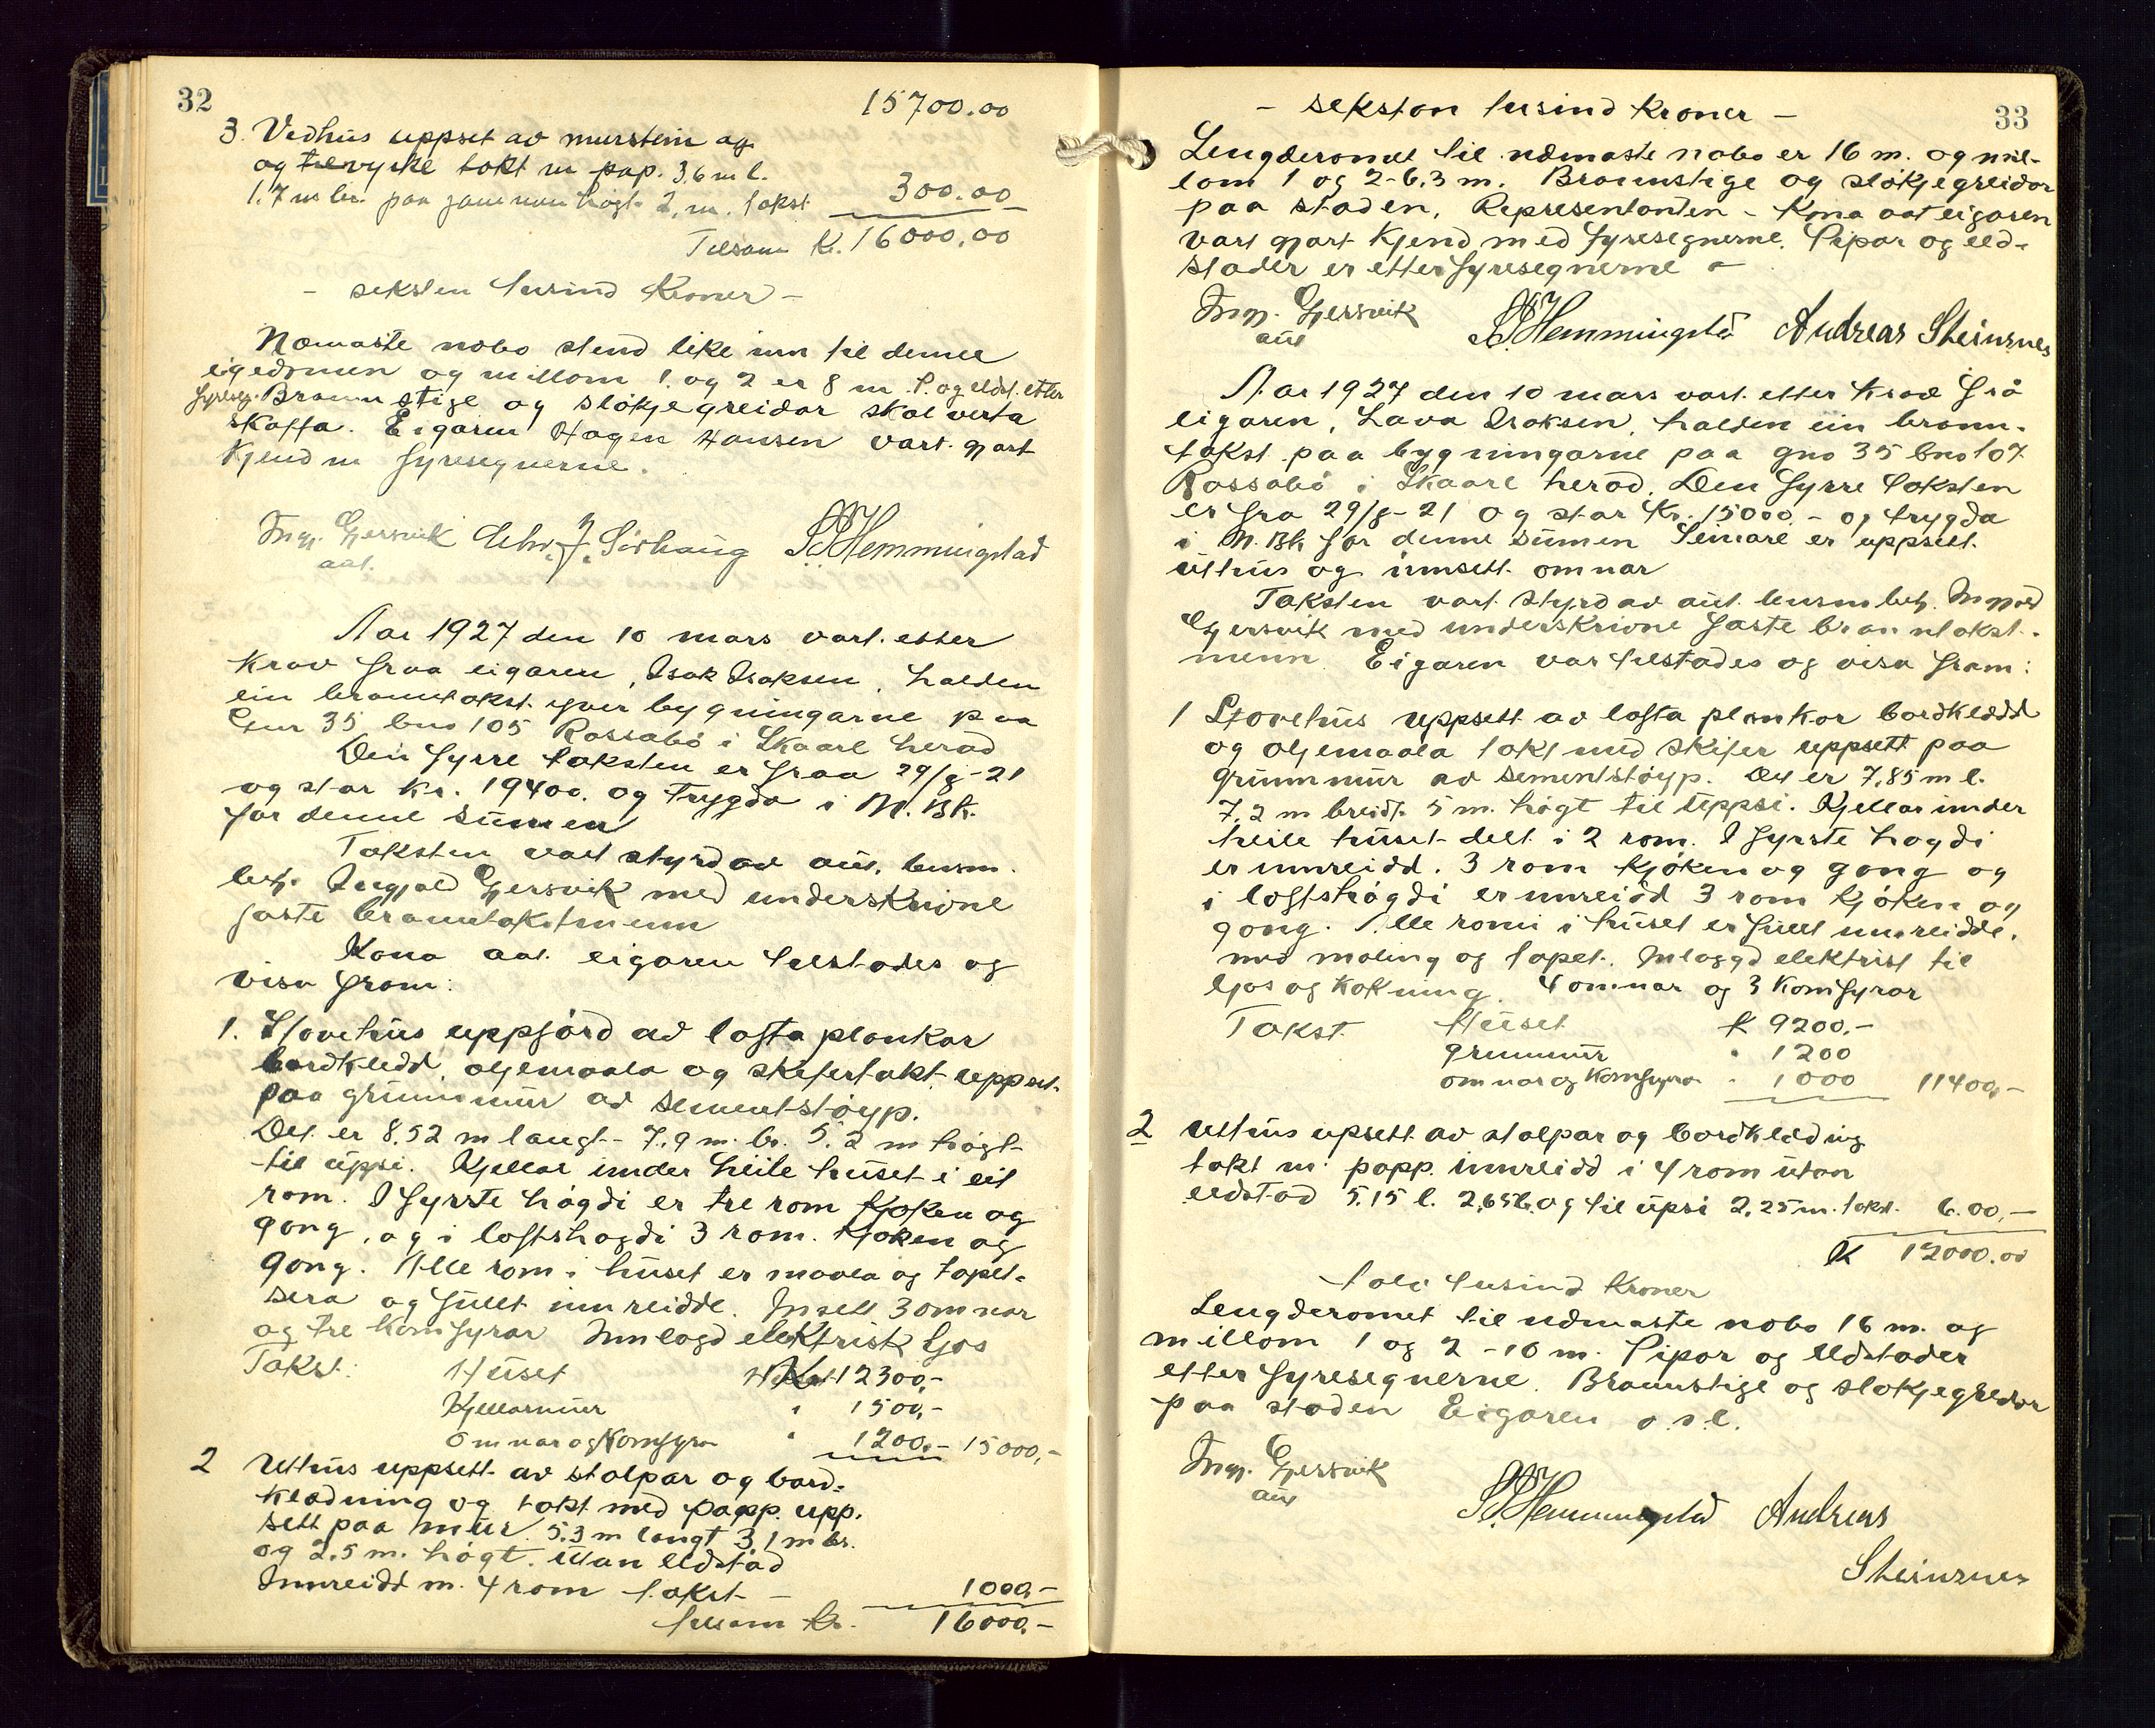 32
15700.00
3. Vedhus uppset av murstein og
og trevyrke tekt m pap. 3,6 m l.
1.7 m br. paa jamnen høgt 2, m. takst 300.00
Tilsam K. 16000.00
- seksten tusind kroner -
Næmaste nabo stend like inn til denne
eigedomen og millom 1. og 2 er 8 m. P. og eldst. etter
fyreseg. Brannstige og sløkjegreidor skal verta
skaffa. Eigaren Hagen Hansen vart gjort
kjend m fyresegnerne.
Ingj. Gjersvik Chr. J. Sørhaug S. S. Hemmingstad
aut.
Aar 1927 den 10 mars vart etter
krav fraa eigaren, Isak Isaksen, halden
ein branntakst yver bygningarne paa
Gnr 35 bno 105 Rossabø i Skaare herad
Den fyrre taksten er fraa 29/8-21
og star kr. 19400. og trygda i N. Bk.
for denne sumen
Taksten vart styrd av aut. lensm.
betj. Ingjald Gjersvik med underskrivne
faste branntakstmenn
Kona aat eigaren tilstades og
visa fram:
1. Stovehus uppførd av lafta plankar
bordkledd, oljemaala og skifertakt, uppset
paa grunnmur av sementstøyp.
Det er 8.52 m langt - 7,9 m. br. 5.2 m høgt
til upsi. Kjellar under heile huset i eit
rom. I fyrste høgdi er tre rom kjøken og
gong, og i loftshøgdi 3 rom. kjøken og
gong. Alle rom i huset er maala og tapet-
sera og fullt innreidde. Insett 3 omnar
og tre komfyrar Innlagd elektrisk ljos
Takst: Huset Kr 12300,-
Kjellarmur " 1500,-
Omnar og Komfyra " 1200,- 15000,-
2 Uthus uppsett av stolpar og bord-
kledning og tekt med papp. upp-
sett paa mur 5.3 m langt 3,1 m br.
og 2.5 m. høgt. Utan eldstad
Innreidd m. 4 rom takst - 1000,-
tilsam kr. 16000.-
33
- seksten tusind kroner -
Lengderomet til næmaste nabo er 16 m. og mil-
lom 1 og 2 - 6.3 m. Brannstige og sløkjegreidor
paa staden. Representanten - Kona aat eigaren
vart gjort kjend med fyresegnerne. Pipor og eld-
stader er etter fyresegnerne -
Ingj. Gjersvik S. S. Hemmingstad Andreas Steinsnes
aut
Aar 1927 den 10 mars vart etter krav frå
eigaren, Lava Isaksen, halden ein brann-
takst paa bygningarne paa gno 35 bno 107
Rossabø i Skaare herad. Den fyrre taksten
er fra 29/8-21 og star kr. 15000.- og trygda
i N. Bk for denne sumen Seinare er uppsett
uthus og innsett omnar
Taksten vart styrd av aut. lensm betj. Ingjald
Gjersvik med underskrivne faste branntakst-
menn. Eigaren var tilstades og visa fram:
1 Stovehus uppsett av lafta plankor bordkledd
og oljemaala takt med skifer uppsett paa
grunnmur av sementstøyp. Det er 7,85 m l.
7,2 m breidt. 5 m. høgt til uppsi. Kjellar under
heile huset delt i 2 rom. I fyrste høgdi
er innreidd. 3 rom kjøken og gong og
i loftshøgdi er innreidd 3 rom kjøken og
gong. Alle romi i huset er fullt innreidde.
med maling og tapet. Inlaggd elektrisk til
ljos og kokning. 4 omnar og 3 komfyrar
Takst. Huset K 9200.-
grunnmur " 1200
omnar og komfyra " 1000 11400,-
2 Uthus upsett av stolpar og bordkledning
takt m. papp. innreidd i 4 rom utan
eldstad 5.15 l. 2,65 b. og til upsi 2.25 m. takst. 600,-
K 12000.00
tolv tusind kroner
Lengderomet til næmaste nabo 16 m. og
millom 1 og 2 - 10 m. Pipor og eldstader
etter fyresegnerne. Brannstige og sløkjegreidor
paa staden Eigaren o. s. l.
Ingj. Gjersvik
aut
S. S. Hemmingstad Andreas
Steinsnes